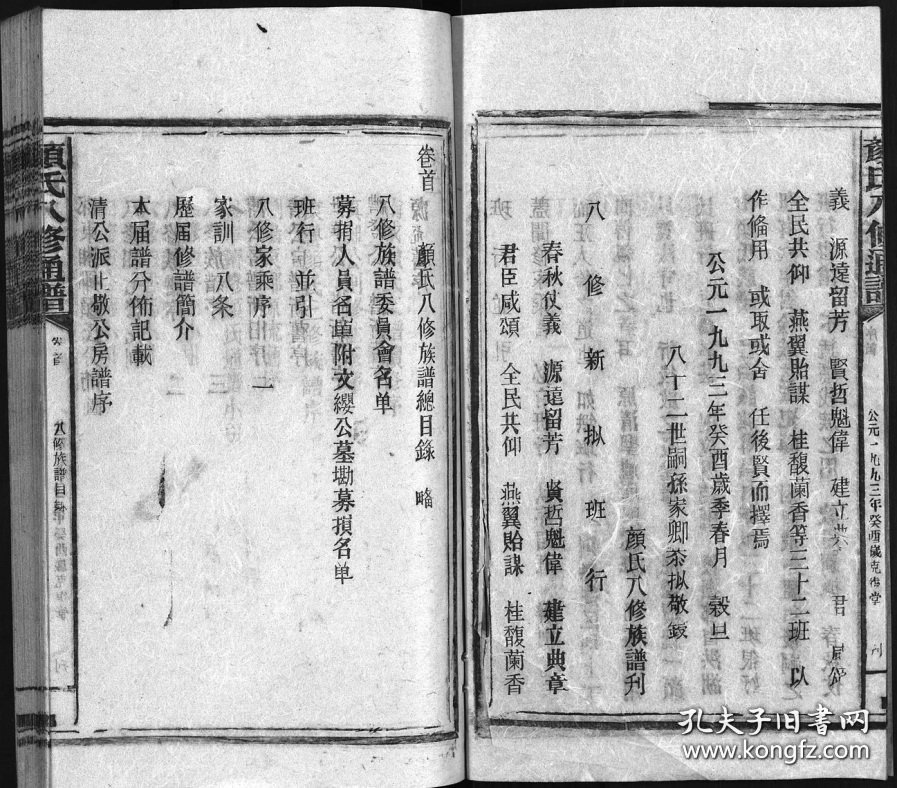 顏氏八修通譜
公元一九九三年癸酉歲克復堂
刊
義 源遠留芳 賢哲魁偉 建立 君
全民共仰 燕翼貽謀 桂馥蘭香等三十二班 以
作俻用 或取或舍 任後賢而擇焉
公元一九九三年癸酉歲季春月 榖旦
八十二世嗣孫家卿忝拟敬鋟
顏氏八修族譜刊
八修新拟班行
春秋仗義 源遠留芳 賢哲魁偉 建立典章
君臣咸頌 全民共仰 燕翼貽謀 桂馥蘭香
卷首 顏氏八修族譜總目錄 略
八修族譜委員會名单
募捐人員名單附文纓公墓勘募損名单
班行 並引
八修家乘序 一 二
家訓 八条 三
歷届修譜簡介
本届譜分佈記載
清公派止敬公房譜序
顏氏八修通譜
卷首
八修族譜目錄
刊
孔夫子旧書网
www.kongfz.com